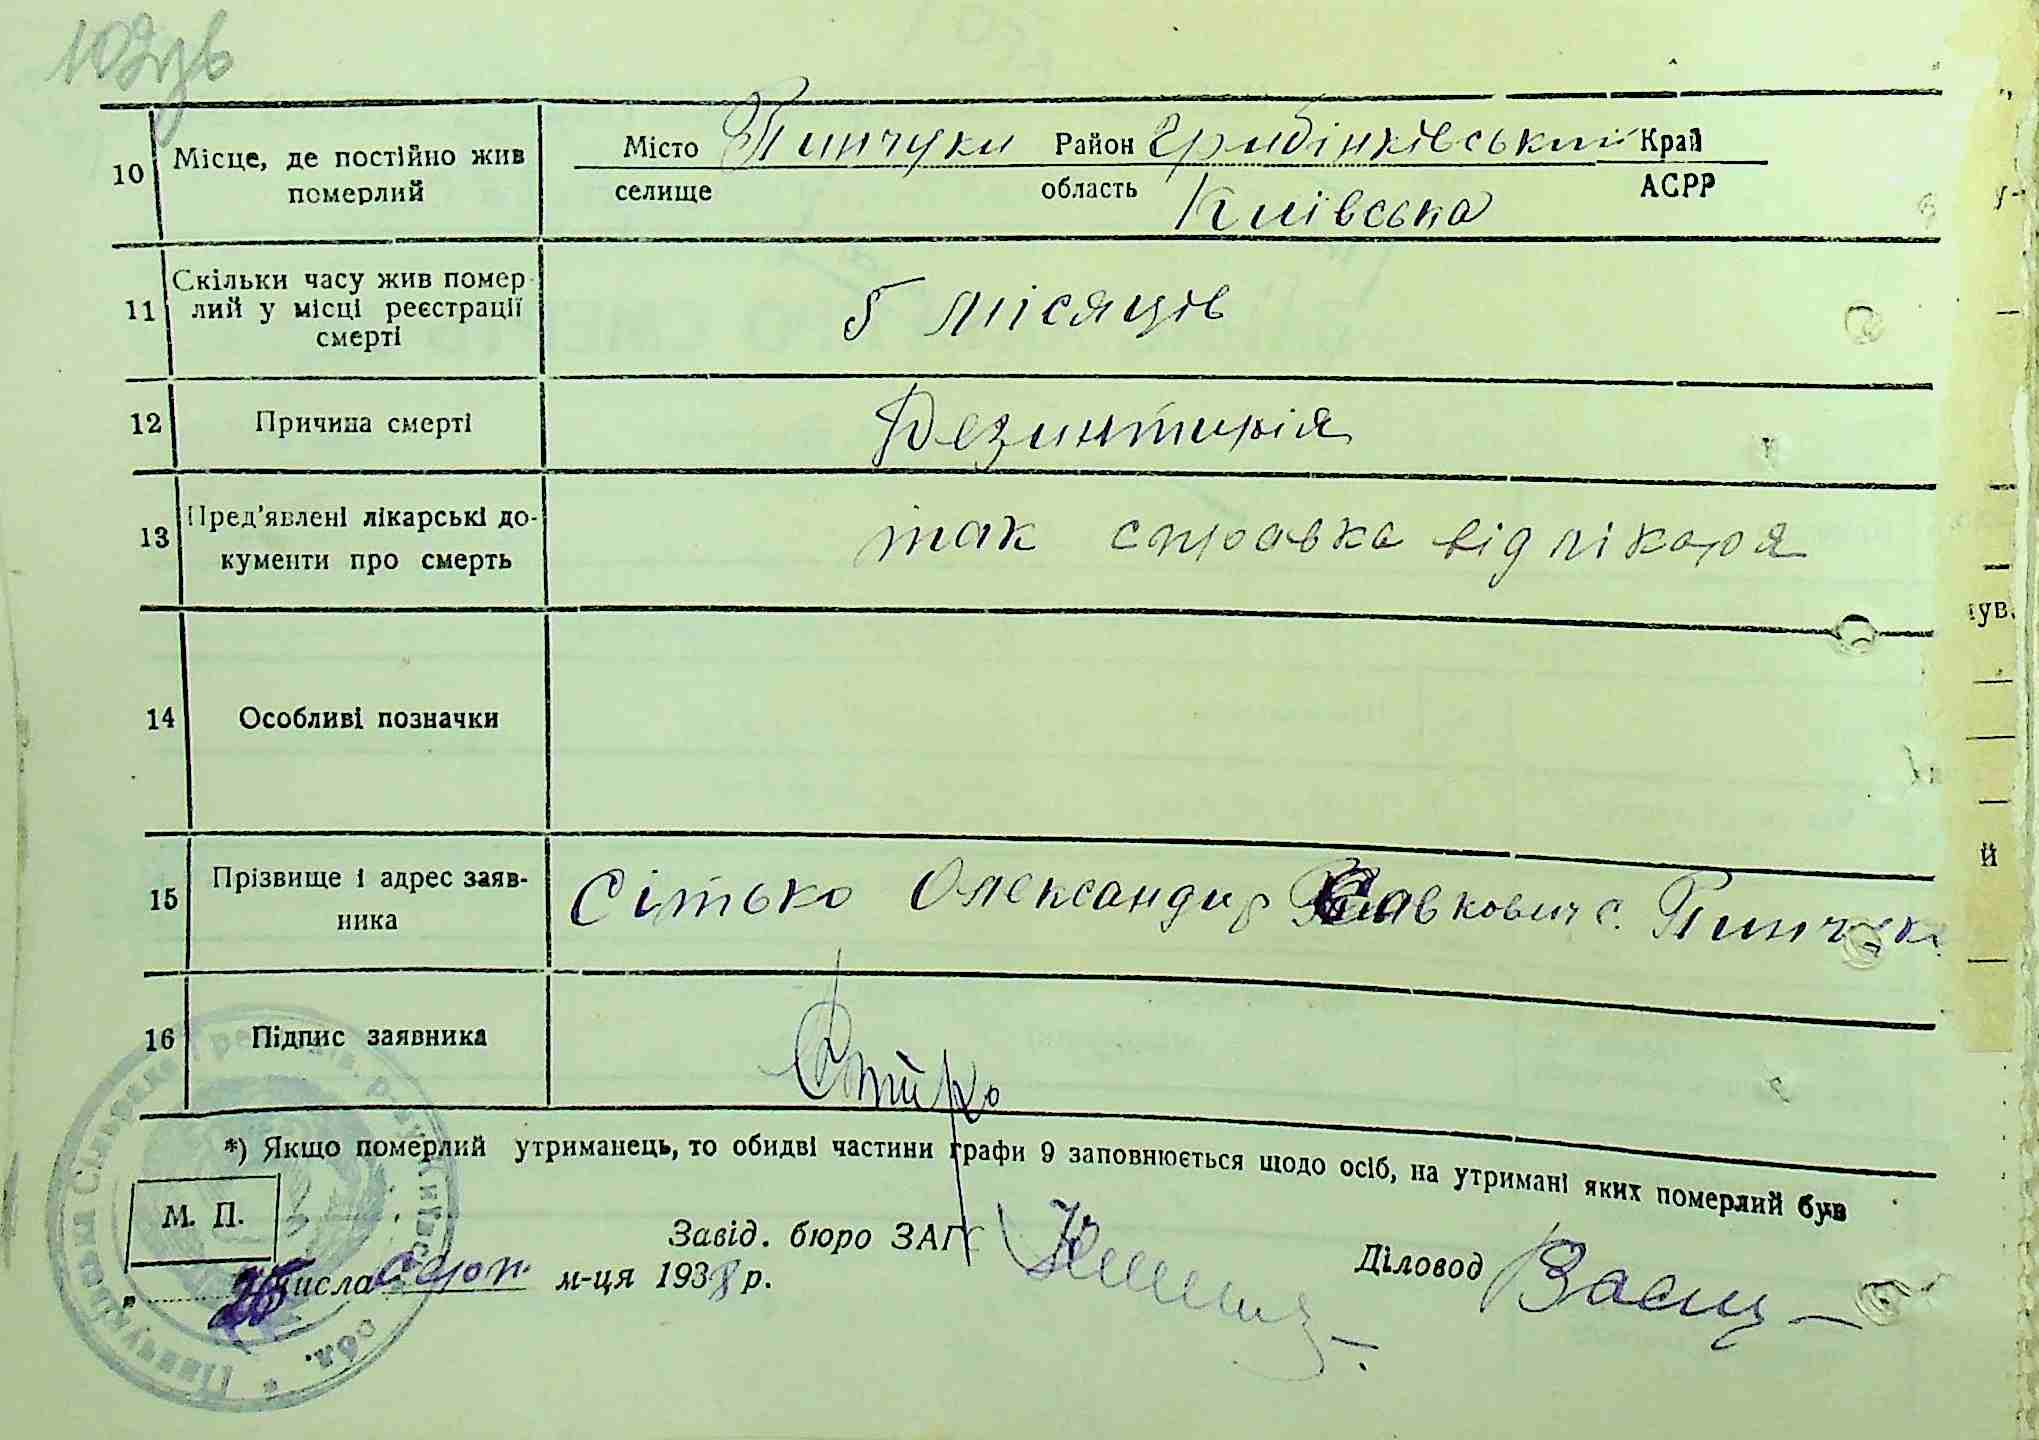 102зв
10 Місце, де постійно жив померлий
Місто Пинчуки Район Грибінківський Край
селище область Київська АСРР
11 Скільки часу жив помер-
лий у місці реєстрації
смерті
5 місяців
12 Причина смерті Дезинтирія
13 Пред'явлені лікарські до-
кументи про смерть
так справка від лікаря
14 Особливі позначки
15 Прізвище і адрес заяв-
ника
Сітько Олександр Савкович с. Пинчуки
16 Підпис заявника Сітько
*) Якщо померлий утриманець, то обидві частини графи 9 заповнюється щодо осіб, на утримані яких померлий був
М. П.
Завід. бюро ЗАГС
Діловод
„ 26 числа серп. м-ця 1938 р.